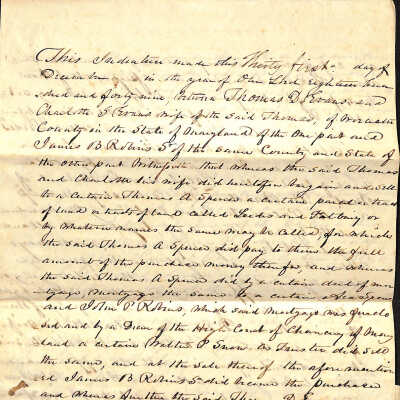 This Indenture made this Thirty first day of
December in the year of Our Lord eighteen hun
dred and forty nine between Thomas D. Evans and
Charlotte E Evans wife of the said Thomas, of Worcester
County in the State of Maryland of the One part and
James B Robins Sr of the same County and State of
the other part Witnesseth that whereas the said Thomas
and Charlotte his wife did heretofore bargain and sell
to a certain Thomas A Spence a certain parcel or tract
of land or tracts of land called and or
by whatever names the same may be called, for which
the said Thomas A Spence did pay to them the full
amount of the purchase money therefor, and whereas
the said Thomas A Spence did by a certain deed of mort
gage, mortgage the same to a certain
and John P Robins, which said mortgage was foreclo
sed and by a Decree of the High Court of Chancery of Mary
land a certain Walter P Snow as Trustee did sell
the same, and at the sale thereof the afore mention
ed James B Robins Sr did become the purchaser
and Whereas further the said Thos D E